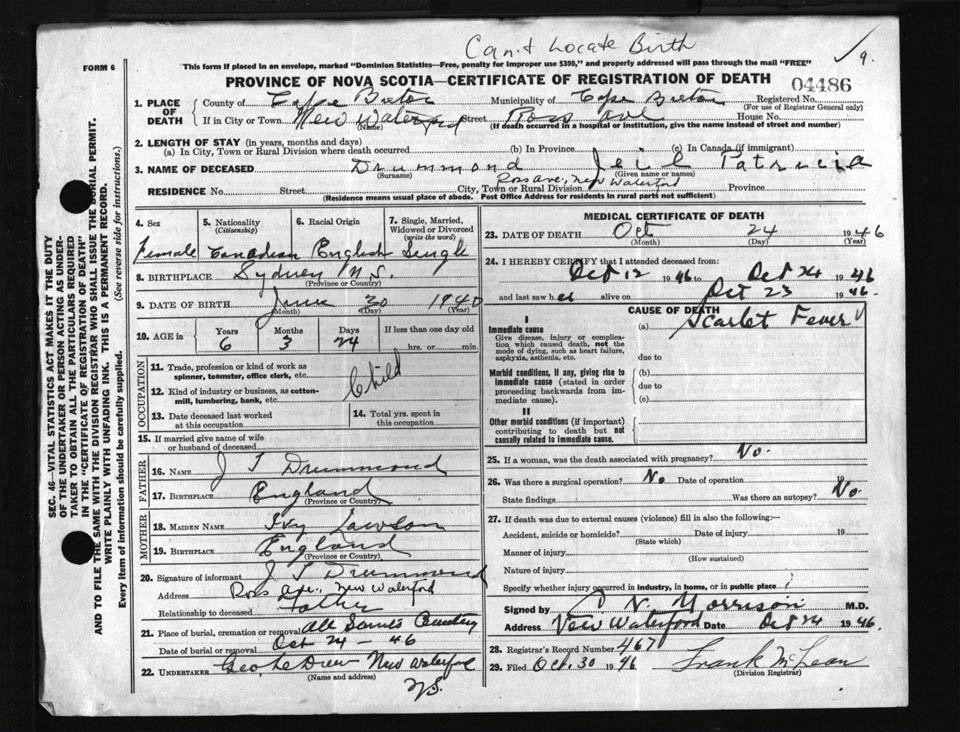 Can't Locate Birth
9.
FORM 6
This form if placed in an envelope, marked "Dominion Statistics—Free, penalty for improper use $300," and properly addressed will pass through the mail "FREE"
PROVINCE OF NOVA SCOTIA—CERTIFICATE OF REGISTRATION OF DEATH
04486
1. PLACE OF DEATH
County of Cape Breton Municipality of Cape Breton Registered No.
(For use of Registrar General only)
If in City or Town New Waterford Street Ross Ave House No.
(Name) (If death occurred in a hospital or institution, give the name instead of street and number)
2. LENGTH OF STAY (in years, months and days)
(a) In City, Town or Rural Division where death occurred (b) In Province (c) In Canada (if immigrant)
3. NAME OF DECEASED Drummond Jeil Patricia
(Surname) (Given name or names)
Ross Ave., New Waterford
RESIDENCE No. Street City, Town or Rural Division Province
(Residence means usual place of abode. Post Office Address for residents in rural parts not sufficient)
SEC. 46—VITAL STATISTICS ACT MAKES IT THE DUTY
OF THE UNDERTAKER OR PERSON ACTING AS UNDER-
TAKER TO OBTAIN ALL THE PARTICULARS REQUIRED
IN THE "CERTIFICATE OF REGISTRATION OF DEATH"
AND TO FILE THE SAME WITH THE DIVISION REGISTRAR WHO SHALL ISSUE THE BURIAL PERMIT.
WRITE PLAINLY WITH UNFADING INK. THIS IS A PERMANENT RECORD.
Every item of information should be carefully supplied. (See reverse side for instructions.)
4. Sex
Female
5. Nationality
(Citizenship)
Canadian
6. Racial Origin
English
7. Single, Married,
Widowed or Divorced
(write the word)
Single
8. BIRTHPLACE Sydney N.S.
(Province or Country)
9. DATE OF BIRTH June 30 1940
(Month) (Day) (Year)
10. AGE in
Years Months Days If less than one day old
6 3 24 hrs. or min.
OCCUPATION
11. Trade, profession or kind of work as
spinner, teamster, office clerk, etc.
Child
12. Kind of industry or business, as cotton-
mill, lumbering, bank, etc.
13. Date deceased last worked
at this occupation
14. Total yrs. spent in
this occupation
15. If married give name of wife
or husband of deceased
FATHER
16. NAME J T Drummond
17. BIRTHPLACE England
(Province or Country)
MOTHER
18. MAIDEN NAME Ivy Lawson
19. BIRTHPLACE England
(Province or Country)
20. Signature of informant J T Drummond
Address Ross Ave., New Waterford
Relationship to deceased Father
21. Place of burial, cremation or removal All Saints Cemetery
Date of burial or removal Oct 24 - 46
22. UNDERTAKER Geo Le Drew New Waterford
(Name and address)
N.S.
MEDICAL CERTIFICATE OF DEATH
23. DATE OF DEATH Oct 24 1946
(Month) (Day) (Year)
24. I HEREBY CERTIFY that I attended deceased from
Oct 12 1946 to Oct 24 1946
and last saw her alive on Oct 23 1946.
CAUSE OF DEATH
I
Immediate cause
Give disease, injury or complica-
tion which caused death, not the
mode of dying, such as heart failure,
asphyxia, asthenia, etc.
(a) Scarlet Fever
due to
Morbid conditions, if any, giving rise to
immediate cause (stated in order
proceeding backwards from im-
mediate cause).
(b)
due to
(c)
II
Other morbid conditions (if important)
contributing to death but not
causally related to immediate cause.
25. If a woman, was the death associated with pregnancy? No.
26. Was there a surgical operation? No Date of operation
State findings Was there an autopsy? No.
27. If death was due to external causes (violence) fill in also the following:—
Accident, suicide or homicide? Date of injury 19
(State which)
Manner of injury
(How sustained)
Nature of injury
Specify whether injury occurred in industry, in home, or in public place
Signed by C N Morrison M.D.
Address New Waterford Date Oct 24 1946.
28. Registrar's Record Number 467
29. Filed Oct. 30 1946 Frank McLean
(Division Registrar)